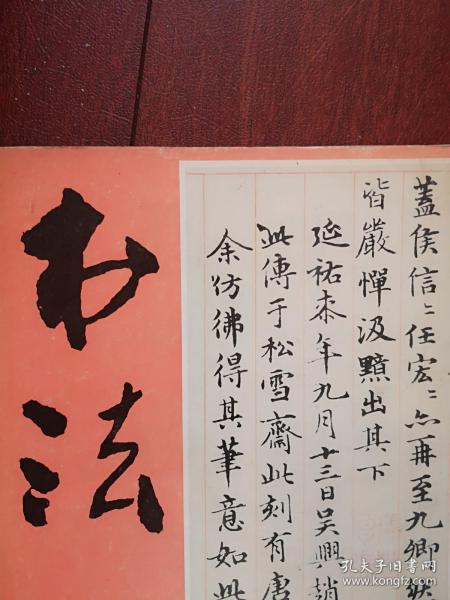 书法
蓋侯信〻任宏〻亦再至九卿然
皆嚴憚汲黯出其下
延祐桼年九月十三日吴興趙
此傳于松雪齋此刻有唐
余仿彿得其筆意如此
孔夫子旧书网